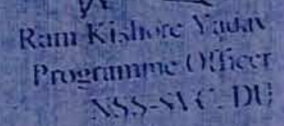 Ram Kishore Yadav
Programme Officer
NSS-SVC-DU